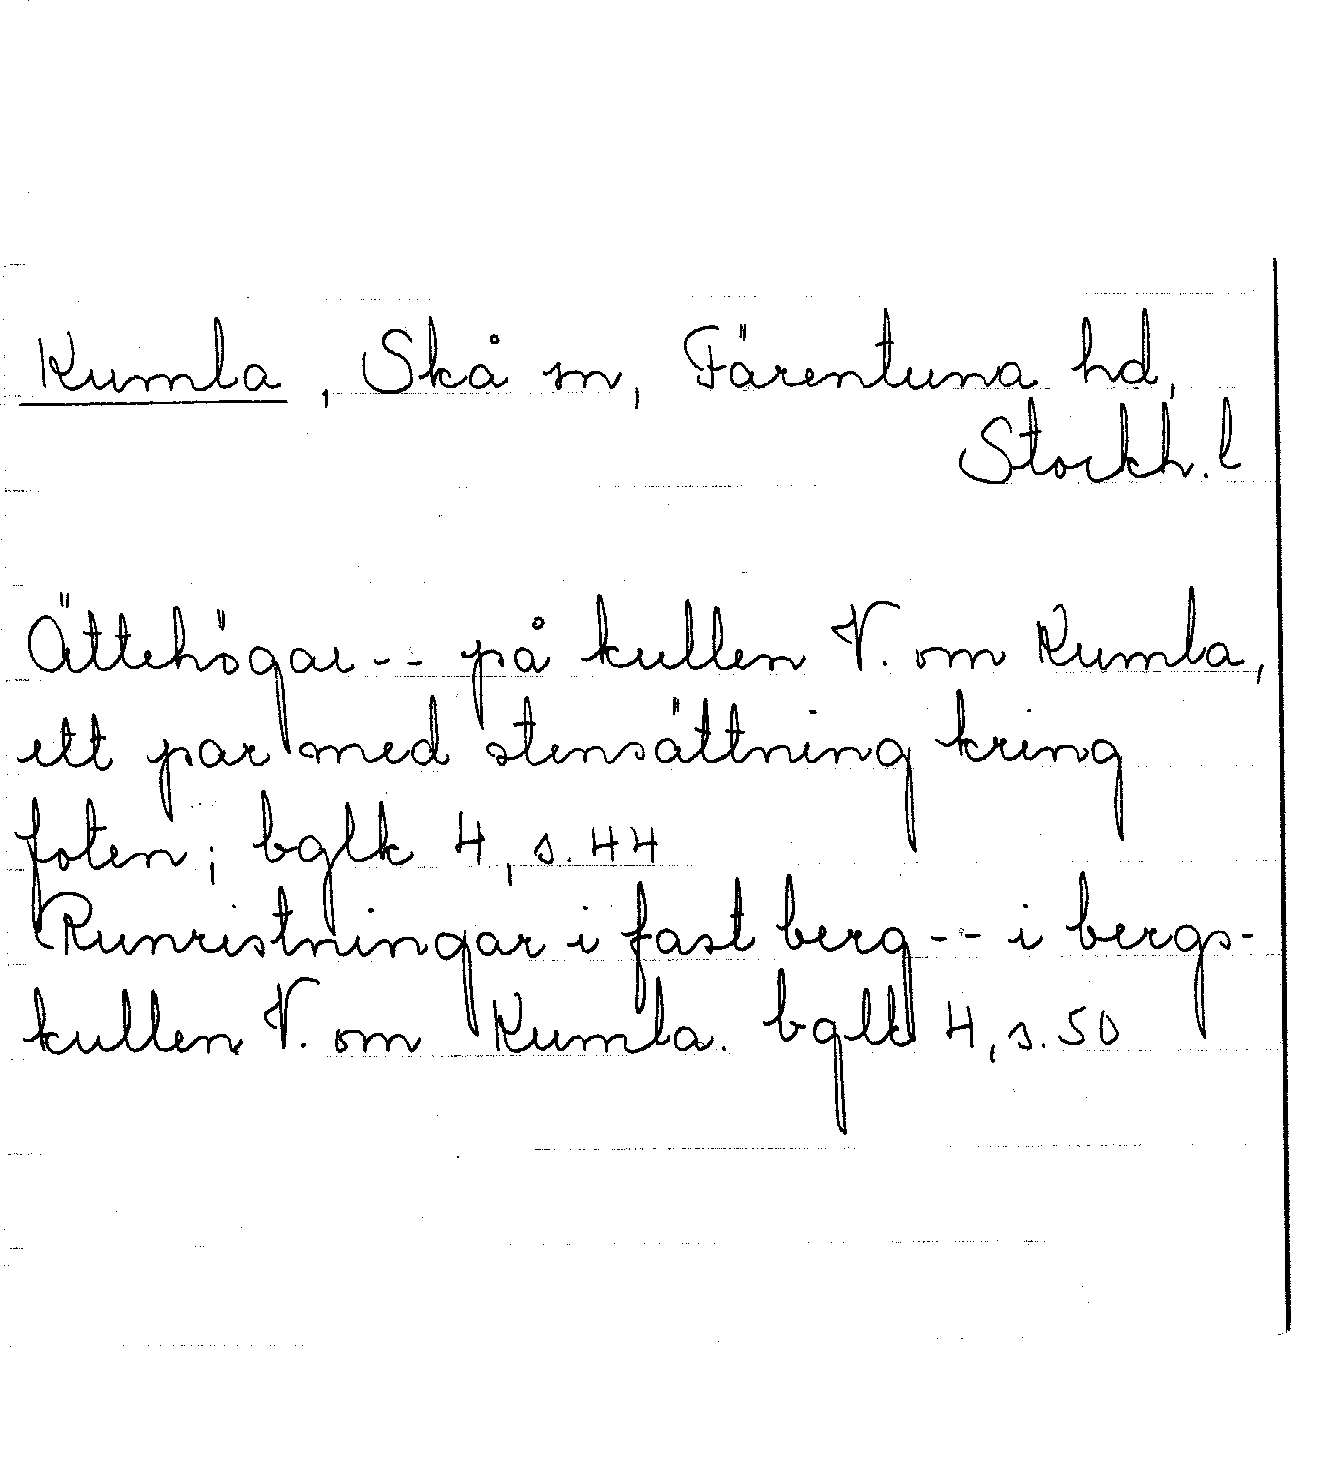 Kumla, Skå sn, Färentuna hd,
Stockh. l
Ättehögar -- på kullen V. om Kumla,
ett par med stensättning kring
foten; bglk 4, s. 44
Runristningar i fast berg -- i bergs-
kullen V. om Kumla. bglk 4, s. 50